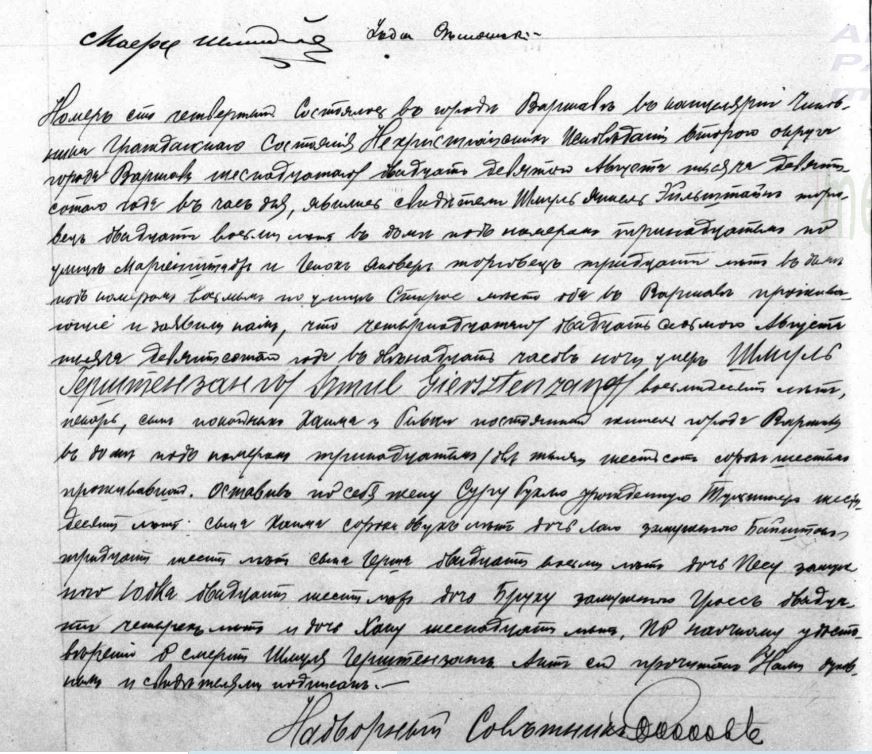 Номеръ сто четвертый Состоялось въ городѣ Варшавѣ въ канцелярiи Чинов-
ника Гражданскаго Состоянiя Нехристiанскихъ Исповѣданiй второго округа
города Варшавы шестнадцатаго/двадцать девятаго Августа тысяча девять-
сотаго года въ часъ дня, явились свидѣтели Шмуль торго-
вецъ двадцати восьми лѣтъ въ домѣ подъ номеромъ тринадцатымъ по
улицѣ Марiенштадтъ и торговецъ тридцати лѣтъ въ домѣ
подъ номеромъ восьмымъ по улицѣ Старое мѣсто оба въ Варшавѣ прожива-
ющiе и заявили намъ, что четырнадцатаго/двадцать седьмого Августа
тысяча девятьсотаго года въ двѣнадцать часовъ ночи умеръ Шмуль
Герштензангъ/ Szmul Giersztenzang/ восьмидесяти лѣтъ,
пекарь, сынъ покойныхъ Хаима и Ривки постоянный житель города Варшавы
въ домѣ подъ номеромъ тринадцатымъ/двѣ тысячи шестьсотъ сорокъ шестымъ
проживавшiй. Оставивъ по себѣ жену Суру урожденную шести-
десяти лѣтъ сына Хаима сорока двухъ лѣтъ дочь Лаю замужнюю
тридцати шести лѣтъ сына Герша двадцати восьми лѣтъ дочь Песу замуж-
нюю двадцати шести лѣтъ дочь Бруху замужнюю Гроссъ двадца-
ти четырехъ лѣтъ и дочь Хану шестнадцати лѣтъ. По наочному удосто-
вѣренiю о смерти Шмуля Герштензанга Актъ сей прочитанъ Нами
и свидѣтелями подписанъ.—
Надворный Совѣтникъ